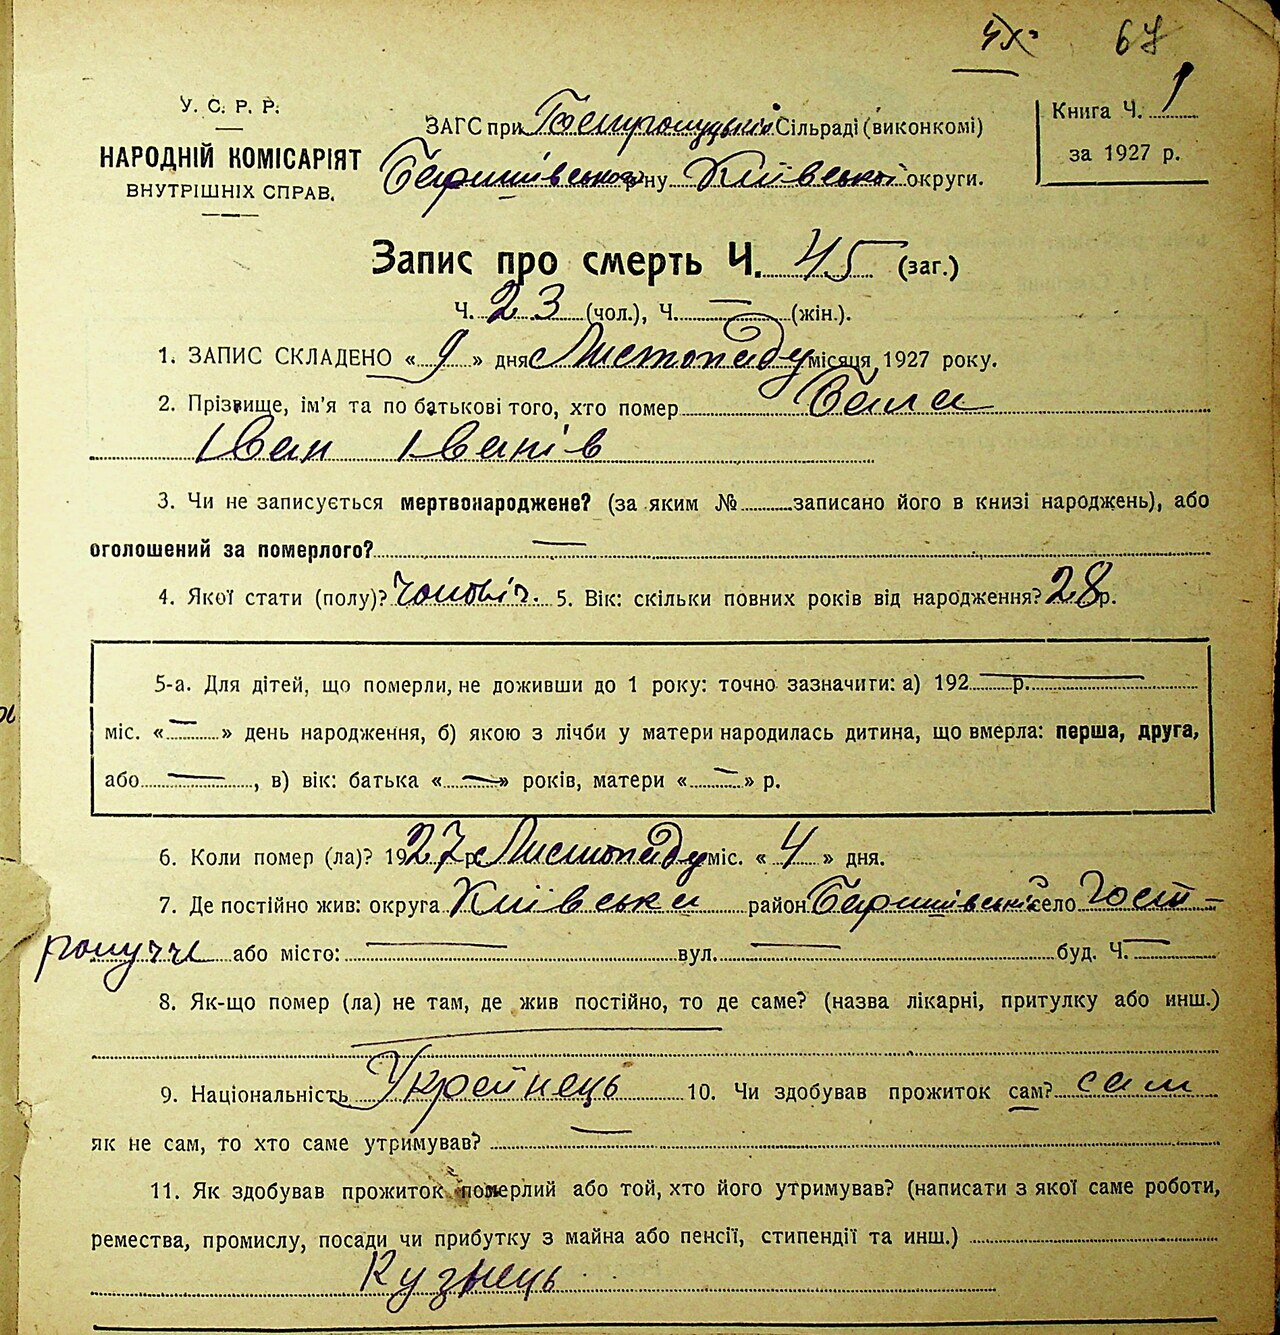 67
У. С. Р. Р.
НАРОДНІЙ КОМІСАРІЯТ
ВНУТРІШНІХ СПРАВ.
ЗАГС при Гостролуцькій Сільраді (виконкомі)
Баришівського р-ну Київської округи.
Книга Ч. 1
за 1927 р.
Запис про смерть Ч. 45 (заг.)
Ч. 23 (чол.), Ч. — (жін.).
1. ЗАПИС СКЛАДЕНО « 9 » дня Листопаду місяця 1927 року.
2. Прізвище, ім'я та по батькові того, хто помер Бала
Іван Іванів
3. Чи не записується мертвонароджене? (за яким № записано його в книзі народжень), або
оголошений за померлого? —
4. Якої стати (полу)? чоловіч. 5. Вік: скільки повних років від народження? 28 р.
5-а. Для дітей, що померли, не доживши до 1 року: точно зазначити: а) 192 — р. —
міс. « — » день народження, б) якою з лічби у матери народилась дитина, що вмерла: перша, друга,
або —, в) вік: батька « — » років, матери « — » р.
6. Коли помер (ла)? 1927 р. Листопаду міс. « 4 » дня.
7. Де постійно жив: округа Київська район Баришівський село Гост-
ролуччя або місто: — вул. — буд. Ч. —
8. Як-що помер (ла) не там, де жив постійно, то де саме? (назва лікарні, притулку або инш.)
—
9. Національність Українець 10. Чи здобував прожиток сам? сам
як не сам, то хто саме утримував? —
11. Як здобував прожиток померлий або той, хто його утримував? (написати з якої саме роботи,
ремества, промислу, посади чи прибутку з майна або пенсії, стипендії та инш.)
Кузнець